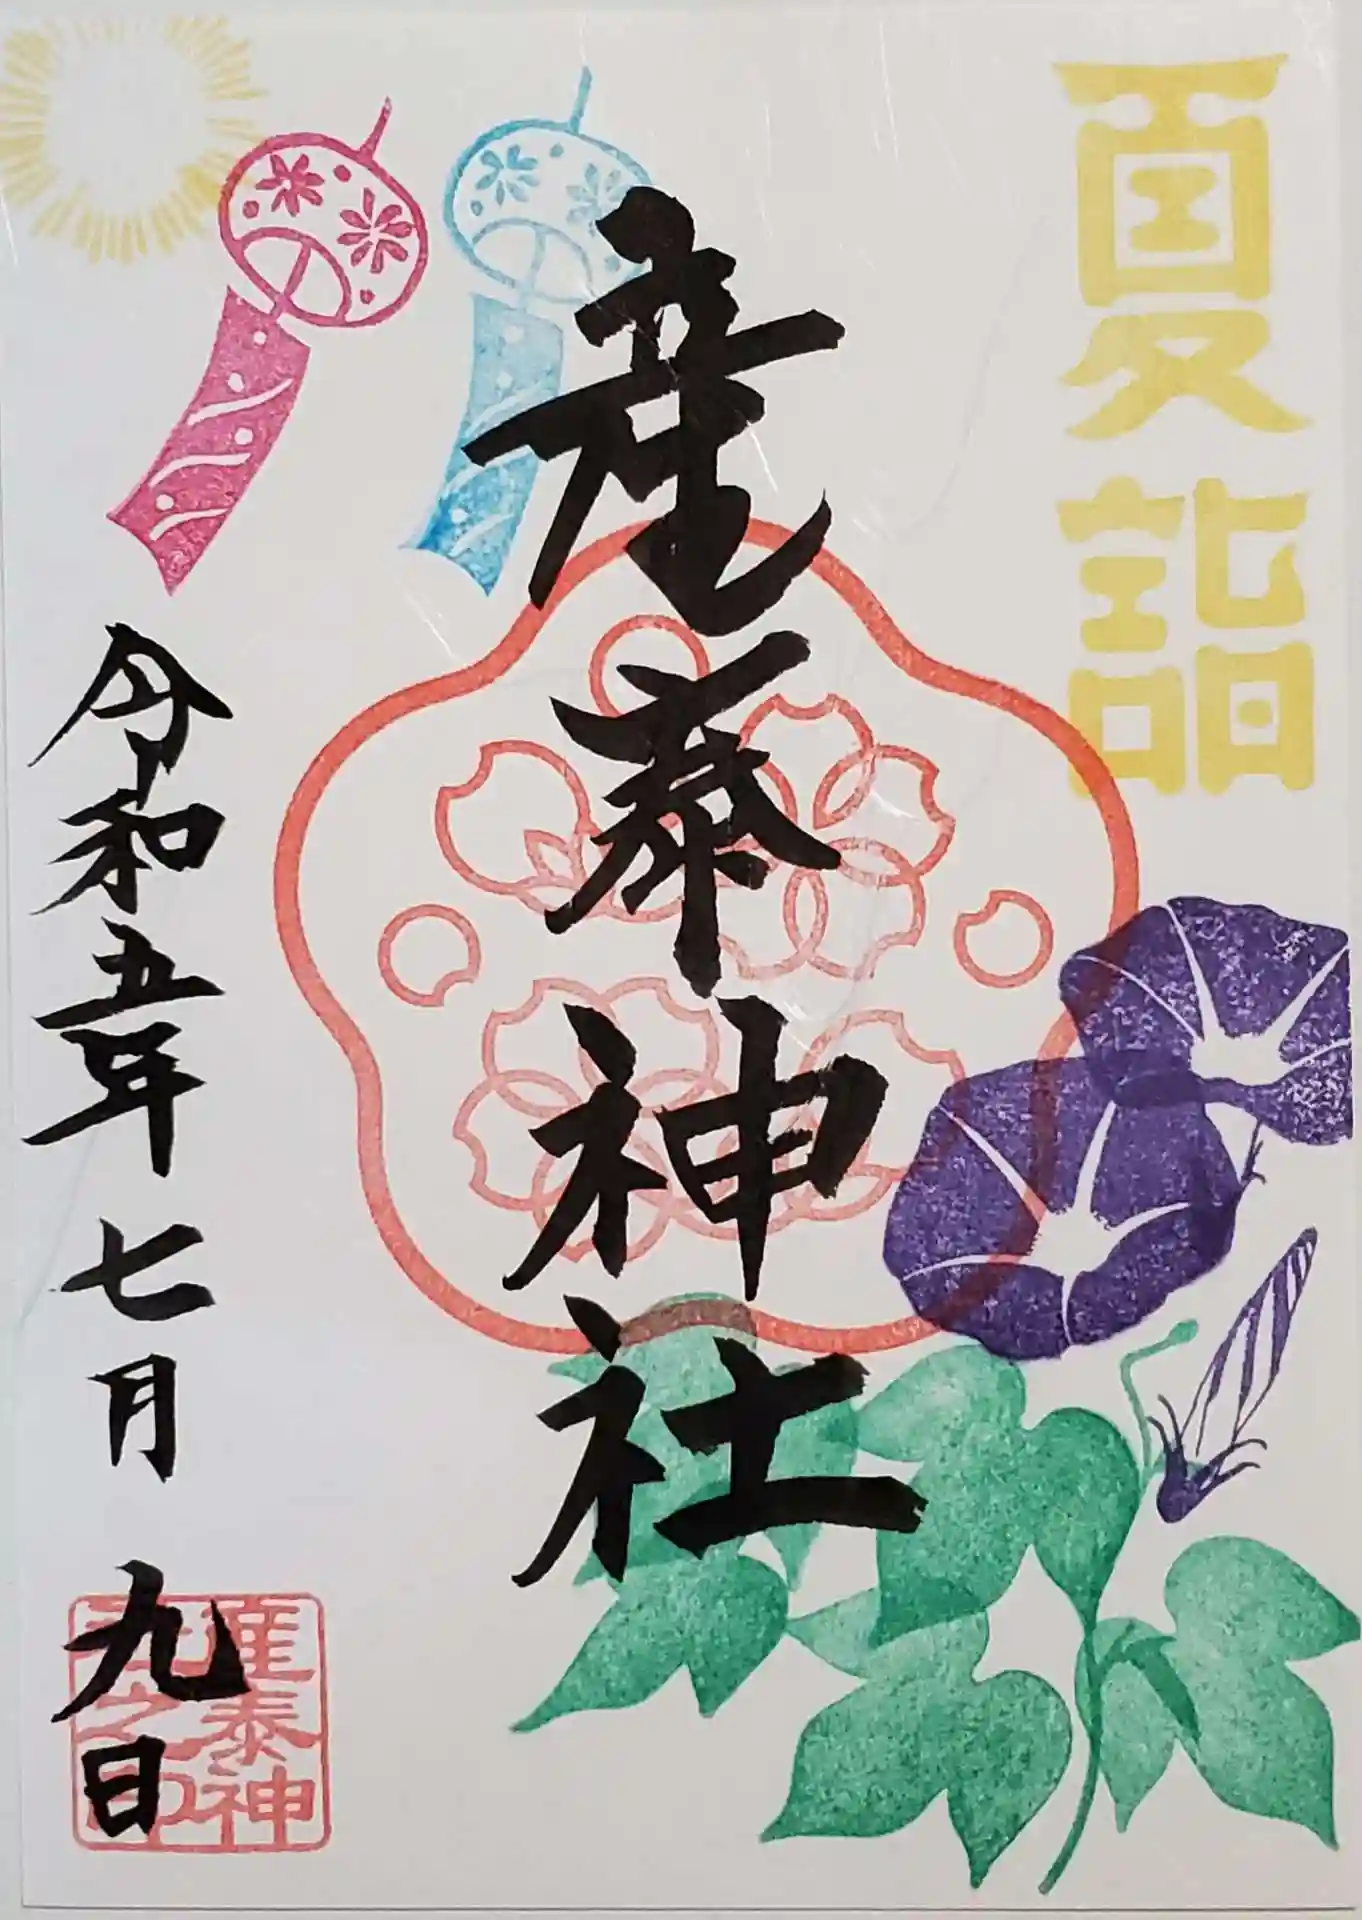 夏詣
産泰神社
令和五年七月九日
産泰神
社之印